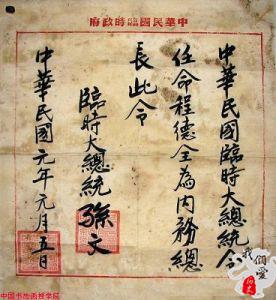 中華民國臨時政府
中華民國臨時大總統令
任命程德全為內務總
長此令
臨時大總統孫文
中華民國元年元月五日
中国书法函授学院
我們愛
歷史